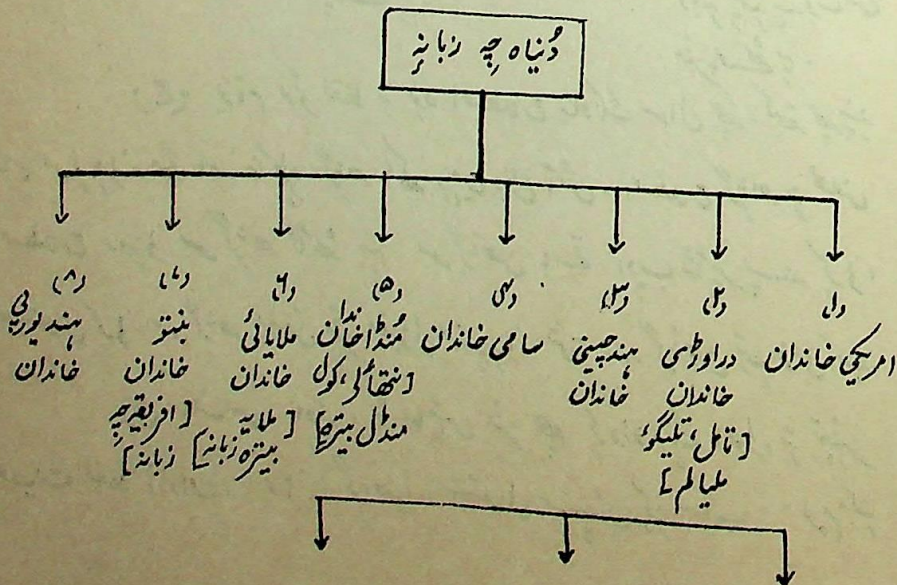 دُنیاہ چہِ زبانہِ
(۱)
امریکی خاندان
(۲)
دراوڑی
خاندان
[تامل، تلیگوٗ
ملیالم]
(۳)
ہندچینی
خاندان
(۴)
سامی خاندان
(۵)
مُنڈا خاندان
[نتھألی، کول
منڈل بیترِ]
(۶)
ملایائی
خاندان
[ملایہ
بیترہ زبانہٕ]
(۷)
بنتو
خاندان
[افریقہ چہِ
زبانہٕ]
(۸)
ہند یورپی
خاندان